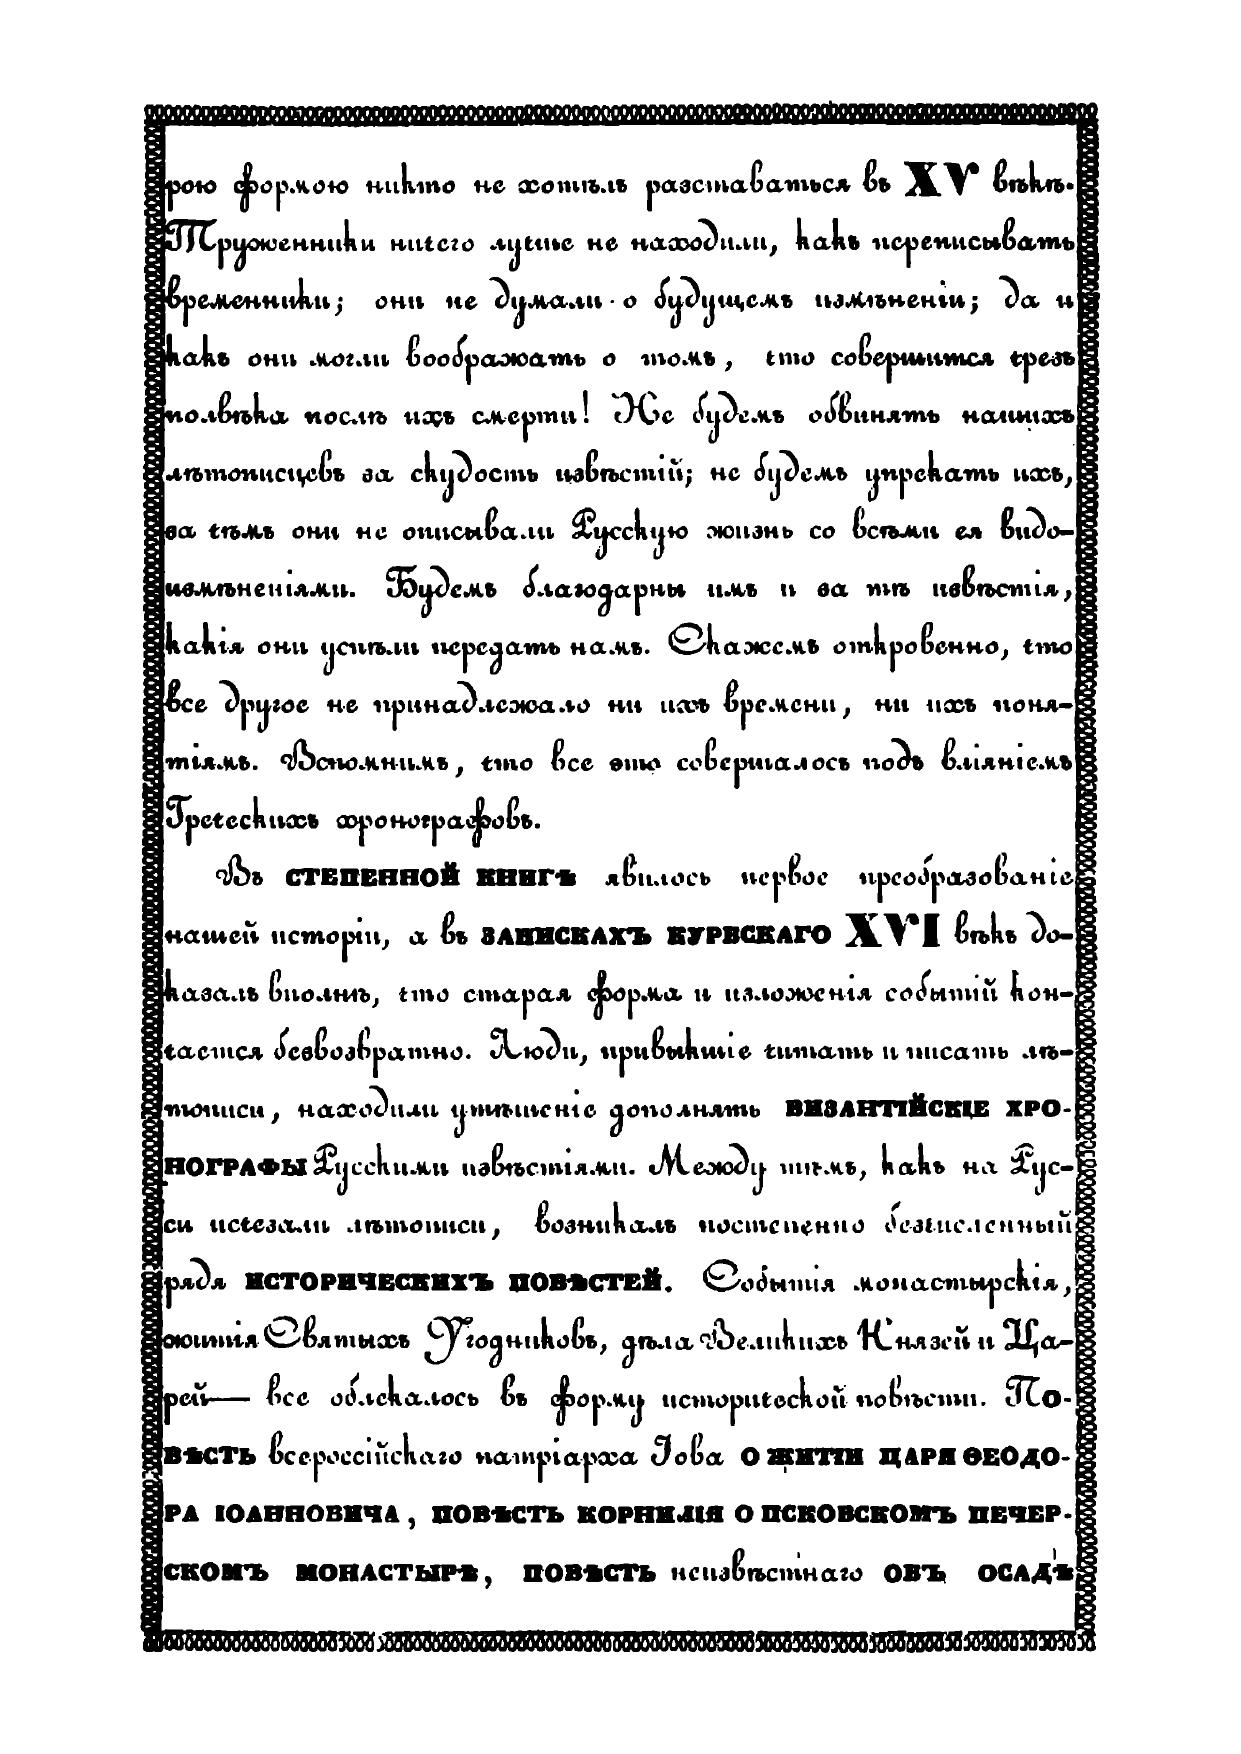 рою формою никто не хотѣлъ разставаться въ XV вѣкѣ.
Труженники ничего лучше не находили, какъ переписывать
временники; они не думали о будущемъ измѣненіи; да и
какъ они могли воображать о томъ, что совершится чрезъ
полвѣка послѣ ихъ смерти! Не будемъ обвинять нашихъ
лѣтописцевъ за скудость извѣстій; не будемъ упрекать ихъ,
за чѣмъ они не описывали Русскую жизнь со всѣми ея видо-
измѣненіями. Будемъ благодарны имъ и за тѣ извѣстія,
какія они успѣли передать намъ. Скажемъ откровенно, что
все другое не принадлежало ни ихъ времени, ни ихъ поня-
тіямъ. Вспомнимъ, что все это совершалось подъ вліяніемъ
Греческихъ хронографовъ.
Въ СТЕПЕННОЙ КНИГѢ явилось первое преобразованіе
нашей исторіи, а въ ЗАПИСКАХЪ КУРБСКАГО XVI вѣкъ до-
казалъ вполнѣ, что старая форма и изложенія событій кон-
чается безвозвратно. Люди, привыкшіе читать и писать лѣ-
тописи, находили утѣшеніе дополнять ВИЗАНТІЙСКІЕ ХРО-
НОГРАФЫ Русскими извѣстіями. Между тѣмъ, какъ на Рус-
си исчезали лѣтописи, возникалъ постепенно безчисленный
рядъ ИСТОРИЧЕСКИХЪ ПОВѢСТЕЙ. Событія монастырскія,
житія Святыхъ Угодниковъ, дѣла Великихъ Князей и Ца-
рей— все облекалось въ форму исторической повѣсти. По-
ВѢСТЬ всероссійскаго патріарха Іова О ЖИТІИ ЦАРЯ ѲЕОДО-
РА ІОАННОВИЧА, ПОВѢСТЬ КОРНИЛІЯ О ПСКОВСКОМЪ ПЕЧЕР-
СКОМЪ МОНАСТЫРѢ, ПОВѢСТЬ неизвѣстнаго ОБЪ ОСАДѢ